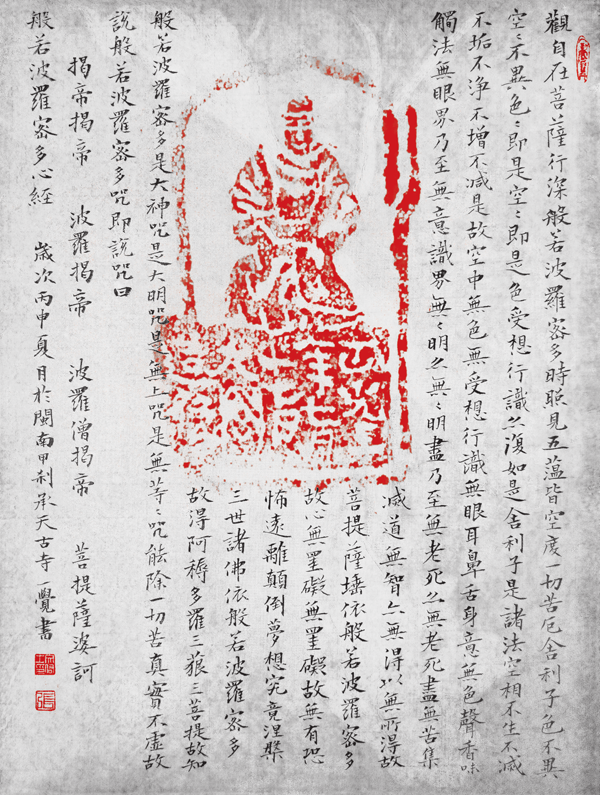 觀自在菩薩行深般若波羅密多時照見五蘊皆空度一切苦厄舍利子色不異
空〻不異色〻即是空〻即是色受想行識亦復如是舍利子是諸法空相不生不滅
不垢不淨不增不減是故空中無色無受想行識無眼耳鼻舌身意無色聲香味
觸法無眼界乃至無意識界無〻明亦無〻明盡乃至無老死亦無老死盡無苦集
滅道無智亦無得以無所得故
菩提薩埵依般若波羅密多
故心無罣礙無罣礙故無有恐
怖遠離顛倒夢想究竟涅槃
三世諸佛依般若波羅密多
故得阿耨多羅三藐三菩提故知
般若波羅密多是大神咒是大明咒是無上咒是無等〻咒能除一切苦真實不虛故
說般若波羅密多咒即說咒曰
揭帝揭帝 波羅揭帝 波羅僧揭帝 菩提薩婆訶
般若波羅密多心經 歲次丙申夏月於閩南甲刹承天古寺一覺書